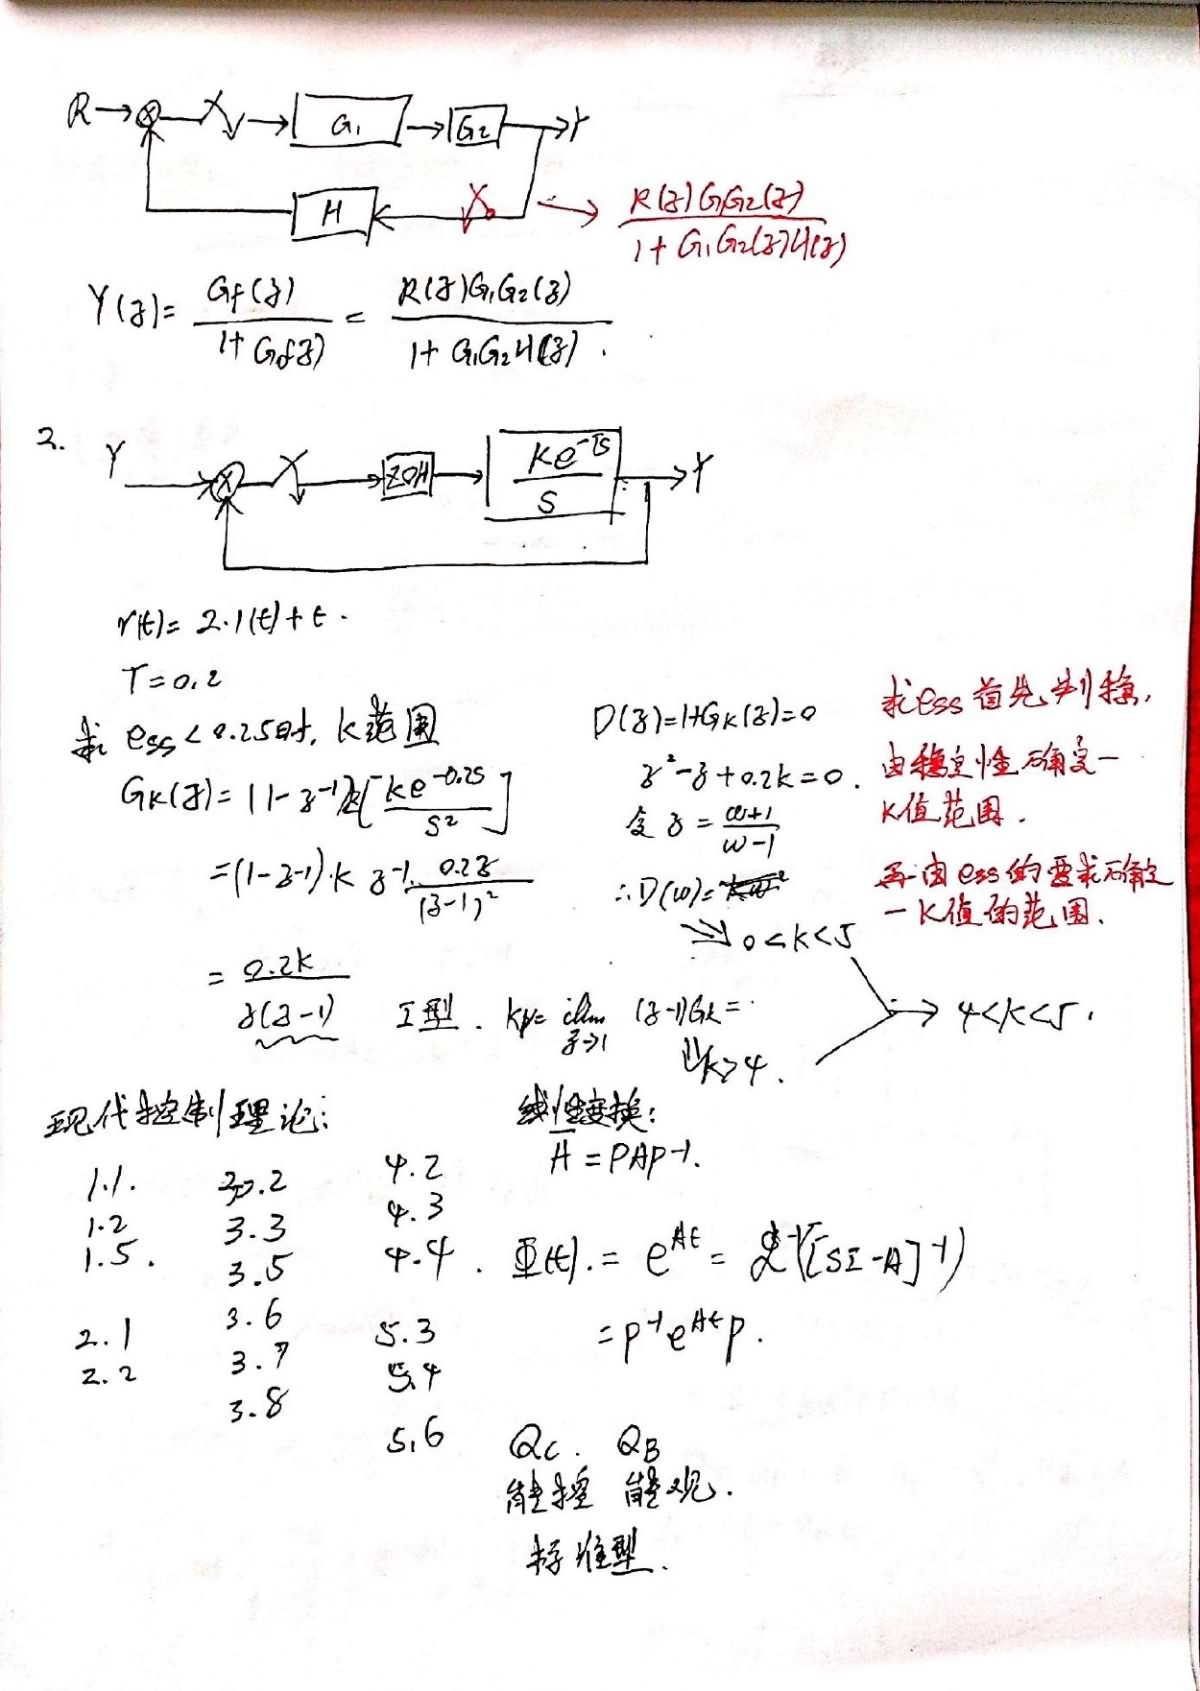 R G₁ G₂ Y
H
R(z)G₁G₂(z) / 1+G₁G₂(z)H(z)
Y(z)= Gf(z) / 1+Gf(z) = R(z)G₁G₂(z) / 1+G₁G₂H(z).
2.
Y ZOH Ke^-Ts / S Y
r(t)=2·1(t)+t.
T=0.2
求 ess<0.25时, K范围
Gk(z)=(1-z^-1)Z[ke^-0.2S / S²]
=(1-z^-1)·k z^-1 · 0.2z / (z-1)²
= 0.2k / z(z-1) I型. kp= lim z→1 (z-1)Gk=
D(z)=1+Gk(z)=0
z²-z+0.2k=0.
令 z= ω+1 / ω-1
∴D(ω)=
⇒ 0<k<5
⇓ k>4.
→ 4<k<5.
求ess首先判稳,
由稳定性确定一
K值范围.
再由ess的要求确定
一K值的范围.
现代控制理论:
1.1.
1.2
1.5.
2.1
2.2
3.2
3.3
3.5
3.6
3.7
3.8
4.2
4.3
4.4.
5.3
5.4
5.6
线性变换:
Ā=PAP^-1.
Φ(t).=e^At=ℒ^-1([SI-A]^-1)
=p^-1e^Atp.
Qc. QB
能控 能观.
标准型.